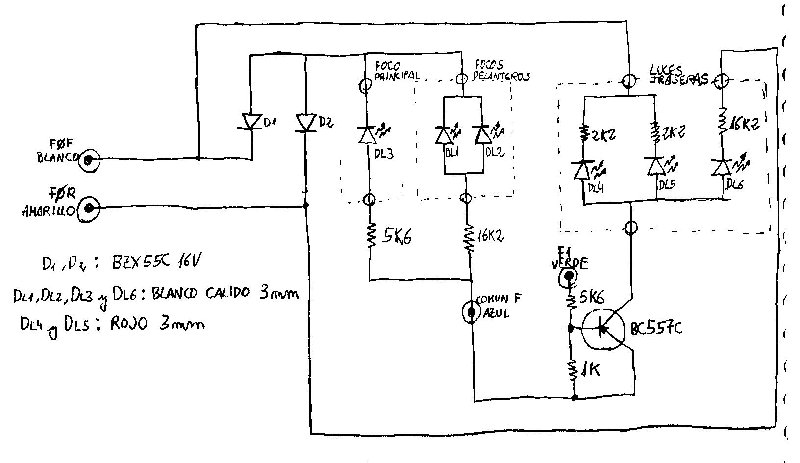 FOCO
PRINCIPAL
FOCOS
DELANTEROS
LUCES
TRASERAS
D1
D2
DL3
DL1
DL2
2K2
2K2
16K2
DL4
DL5
DL6
FØF
BLANCO
FØR
AMARILLO
5K6
16K2
F1
VERDE
5K6
COMUN F
AZUL
BC557C
1K
D1, D2 : BZX55C 16V
DL1, DL2, DL3 y DL6 : BLANCO CALIDO 3mm
DL4 y DL5 : ROJO 3mm